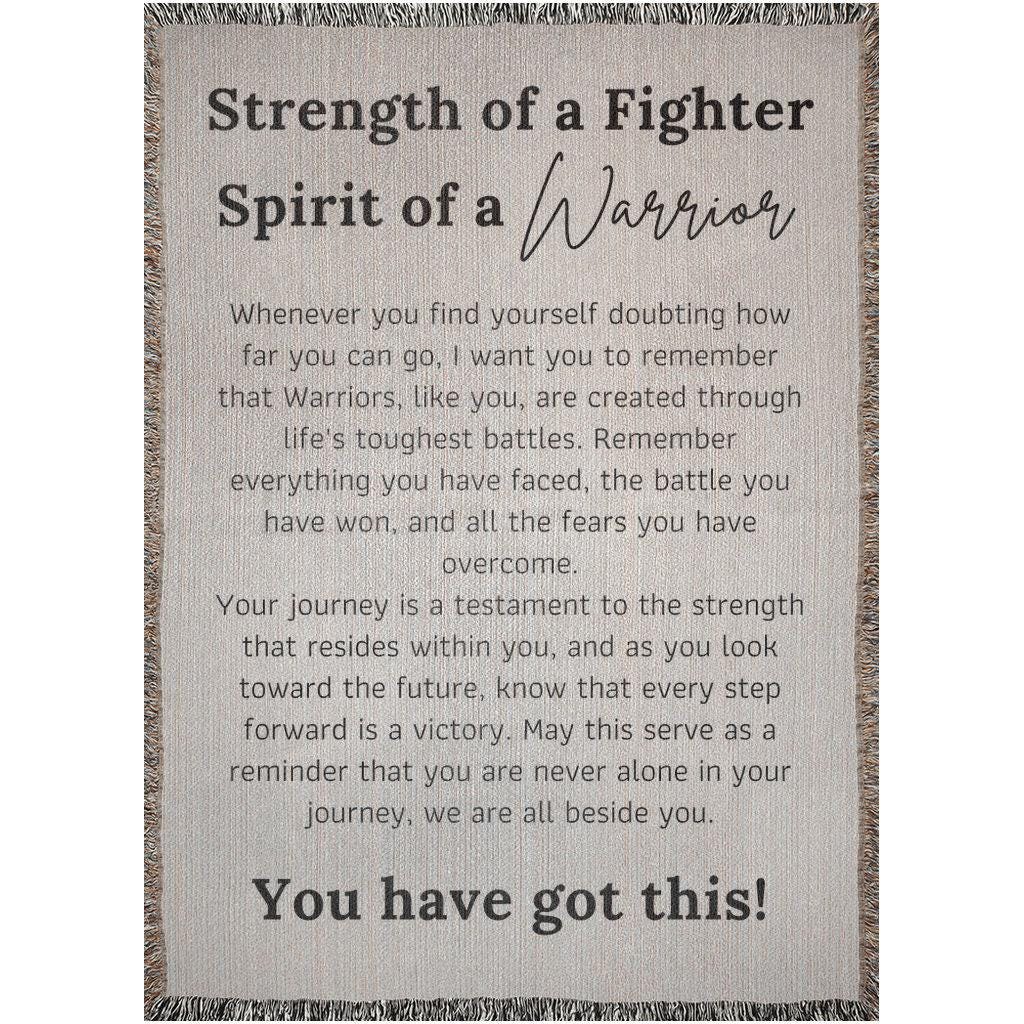 Strength of a Fighter
Spirit of a Warrior
Whenever you find yourself doubting how
far you can go, I want you to remember
that Warriors, like you, are created through
life's toughest battles. Remember
everything you have faced, the battle you
have won, and all the fears you have
overcome.
Your journey is a testament to the strength
that resides within you, and as you look
toward the future, know that every step
forward is a victory. May this serve as a
reminder that you are never alone in your
journey, we are all beside you.
You have got this!